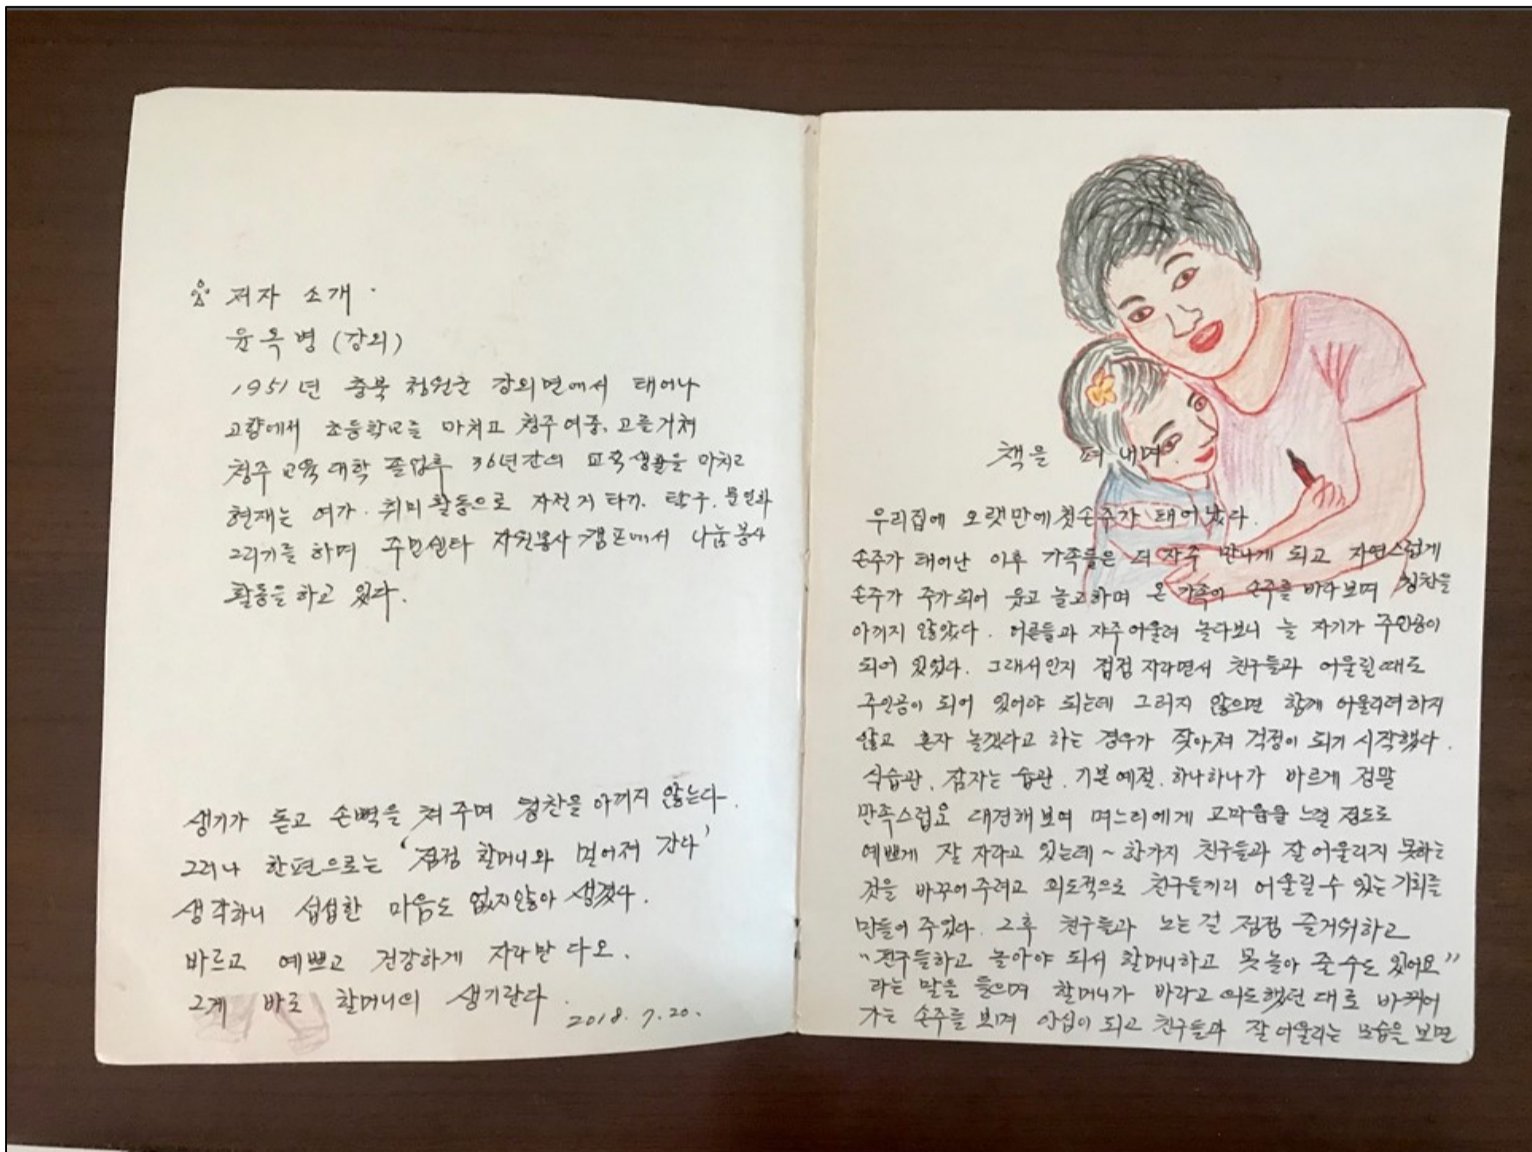 저자 소개.
윤옥병 (강외)
1951년 충북 청원군 강외면에서 태어나
고향에서 초등학교를 마치고 청주여중, 고를 거쳐
청주 교육 대학 졸업후 36년간의 교직생활을 마치고
현재는 여가·취미 활동으로 자전거 타기, 탁구, 문인화
그리기를 하며 주민센타 자원봉사 캠프에서 나눔봉사
활동을 하고 있다.
생기가 돋고 손뼉을 쳐 주며 칭찬을 아끼지 않는다.
그러나 한편으로는 '점점 할머니와 멀어져 간다'
생각하니 섭섭한 마음도 없지않아 생겼다.
바르고 예쁘고 건강하게 자라만 다오.
그게 바로 할머니의 생기란다.
2018. 7. 20.
책을 펴 내며
우리집에 오랫만에 첫손주가 태어났다.
손주가 태어난 이후 가족들은 더 자주 만나게 되고 자연스럽게
손주가 주가 되어 웃고 놀고하며 온 가족이 손주를 바라보며 칭찬을
아끼지 않았다. 어른들과 자주 어울려 놀다보니 늘 자기가 주인공이
되어 있었다. 그래서인지 점점 자라면서 친구들과 어울릴때도
주인공이 되어 있어야 되는데 그러지 않으면 함께 어울리려 하지
않고 혼자 놀겠다고 하는 경우가 잦아져 걱정이 되기 시작했다.
식습관, 잠자는 습관, 기본예절, 하나하나가 바르게 정말
만족스럽고 대견해 보여 며느리에게 고마움을 느낄 정도로
예쁘게 잘 자라고 있는데~ 한가지 친구들과 잘 어울리지 못하는
것을 바꾸어주려고 의도적으로 친구들끼리 어울릴 수 있는 기회를
만들어 주었다. 그후 친구들과 노는 걸 점점 즐거워하고
"친구들하고 놀아야 되서 할머니하고 못 놀아 줄 수도 있어요"
라는 말을 들으며 할머니가 바라고 의도했던 대로 바뀌어
가는 손주를 보며 안심이 되고 친구들과 잘 어울리는 모습을 보면